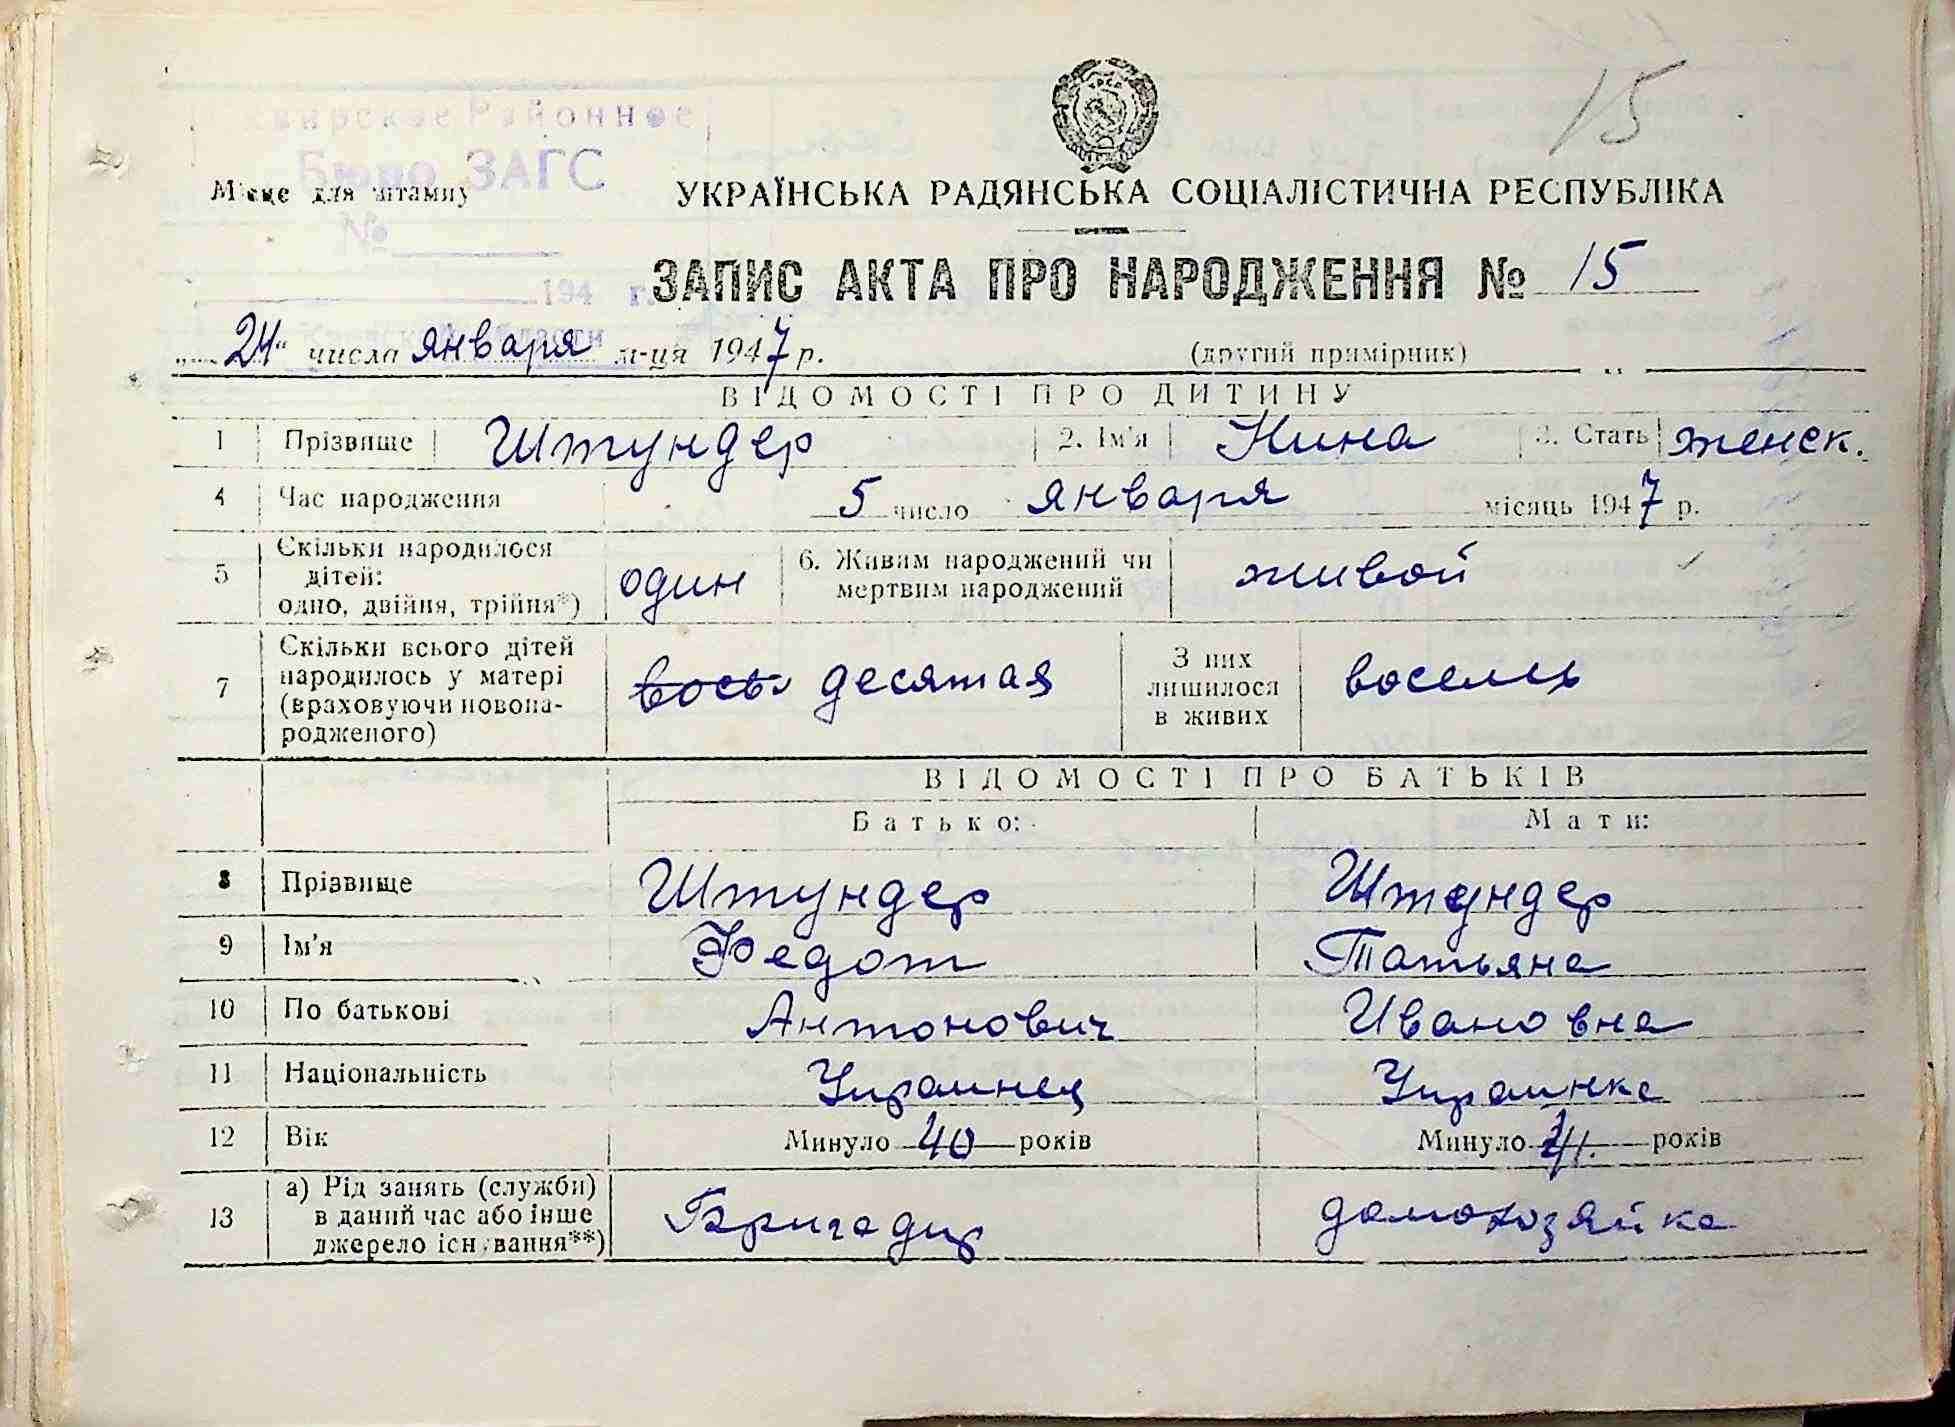 15
Районное
Бюро ЗАГС
Місце для штампу
УКРАЇНСЬКА РАДЯНСЬКА СОЦІАЛІСТИЧНА РЕСПУБЛІКА
№
ЗАПИС АКТА ПРО НАРОДЖЕННЯ № 15
194 г.
„24“ числа января м-ця 1947 р. (другий примірник)
ВІДОМОСТІ ПРО ДИТИНУ
1 Прізвище Штундер 2. Ім'я Нина 3. Стать женск.
4 Час народження 5 число января місяць 1947 р.
5 Скільки народилося дітей: одно, двійня, трійня*) один 6. Живим народжений чи мертвим народжений живой
7 Скільки всього дітей народилось у матері (враховуючи новонародженого) восьм десятая З них лишилося в живих восемь
ВІДОМОСТІ ПРО БАТЬКІВ
Батько: Мати:
8 Прізвище Штундер Штундер
9 Ім'я Федот Татьяна
10 По батькові Антонович Ивановна
11 Національність Украинец Украинка
12 Вік Минуло 40 років Минуло років
13 а) Рід занять (служби) в даний час або інше джерело існування**) Бригадир домохозяйка